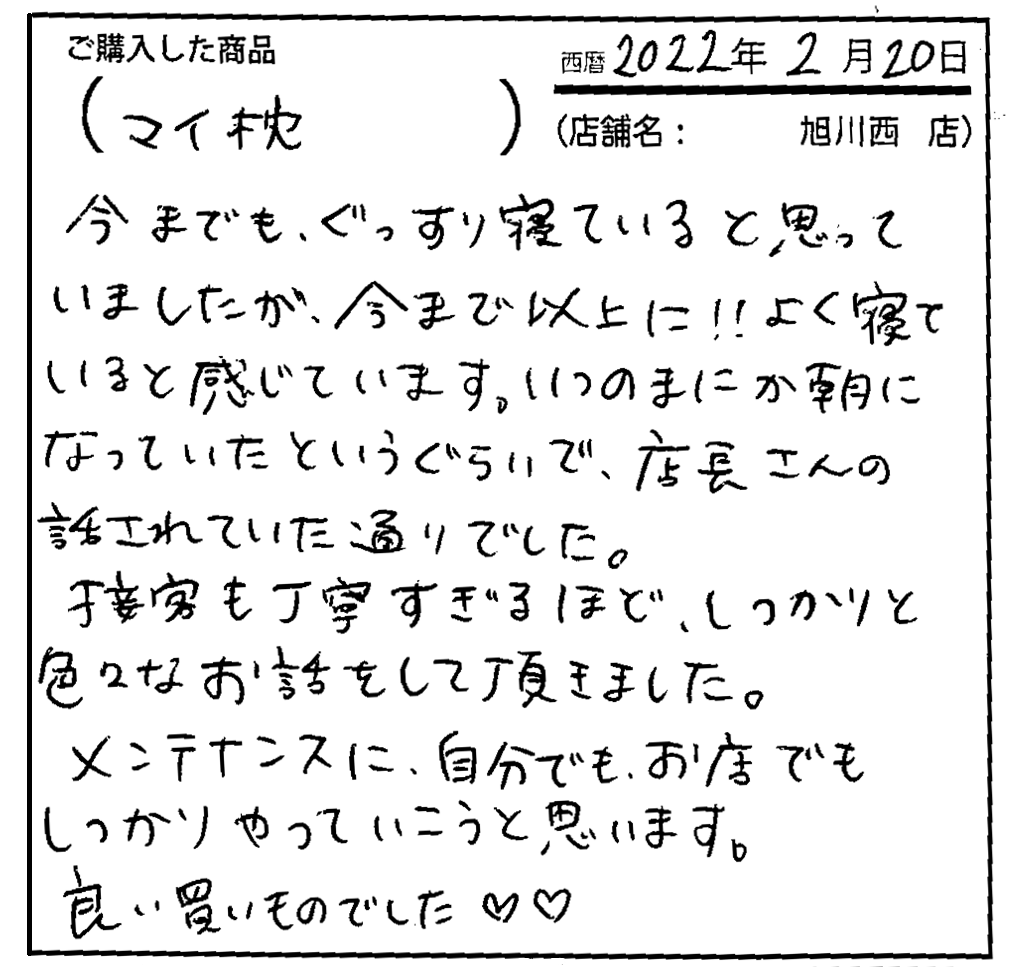 ご購入した商品
西暦 2022年 2月20日
(マイ枕)
(店舗名: 旭川西 店)
今までも、ぐっすり寝ていると思って
いましたが、今まで以上に!!よく寝て
いると感じています。いつのまにか朝に
なっていたというぐらいで、店長さんの
話されていた通りでした。
接客も丁寧すぎるほど、しっかりと
色々なお話をして頂きました。
メンテナンスに、自分でも、お店でも
しっかりやっていこうと思います。
良い買いものでした♡♡